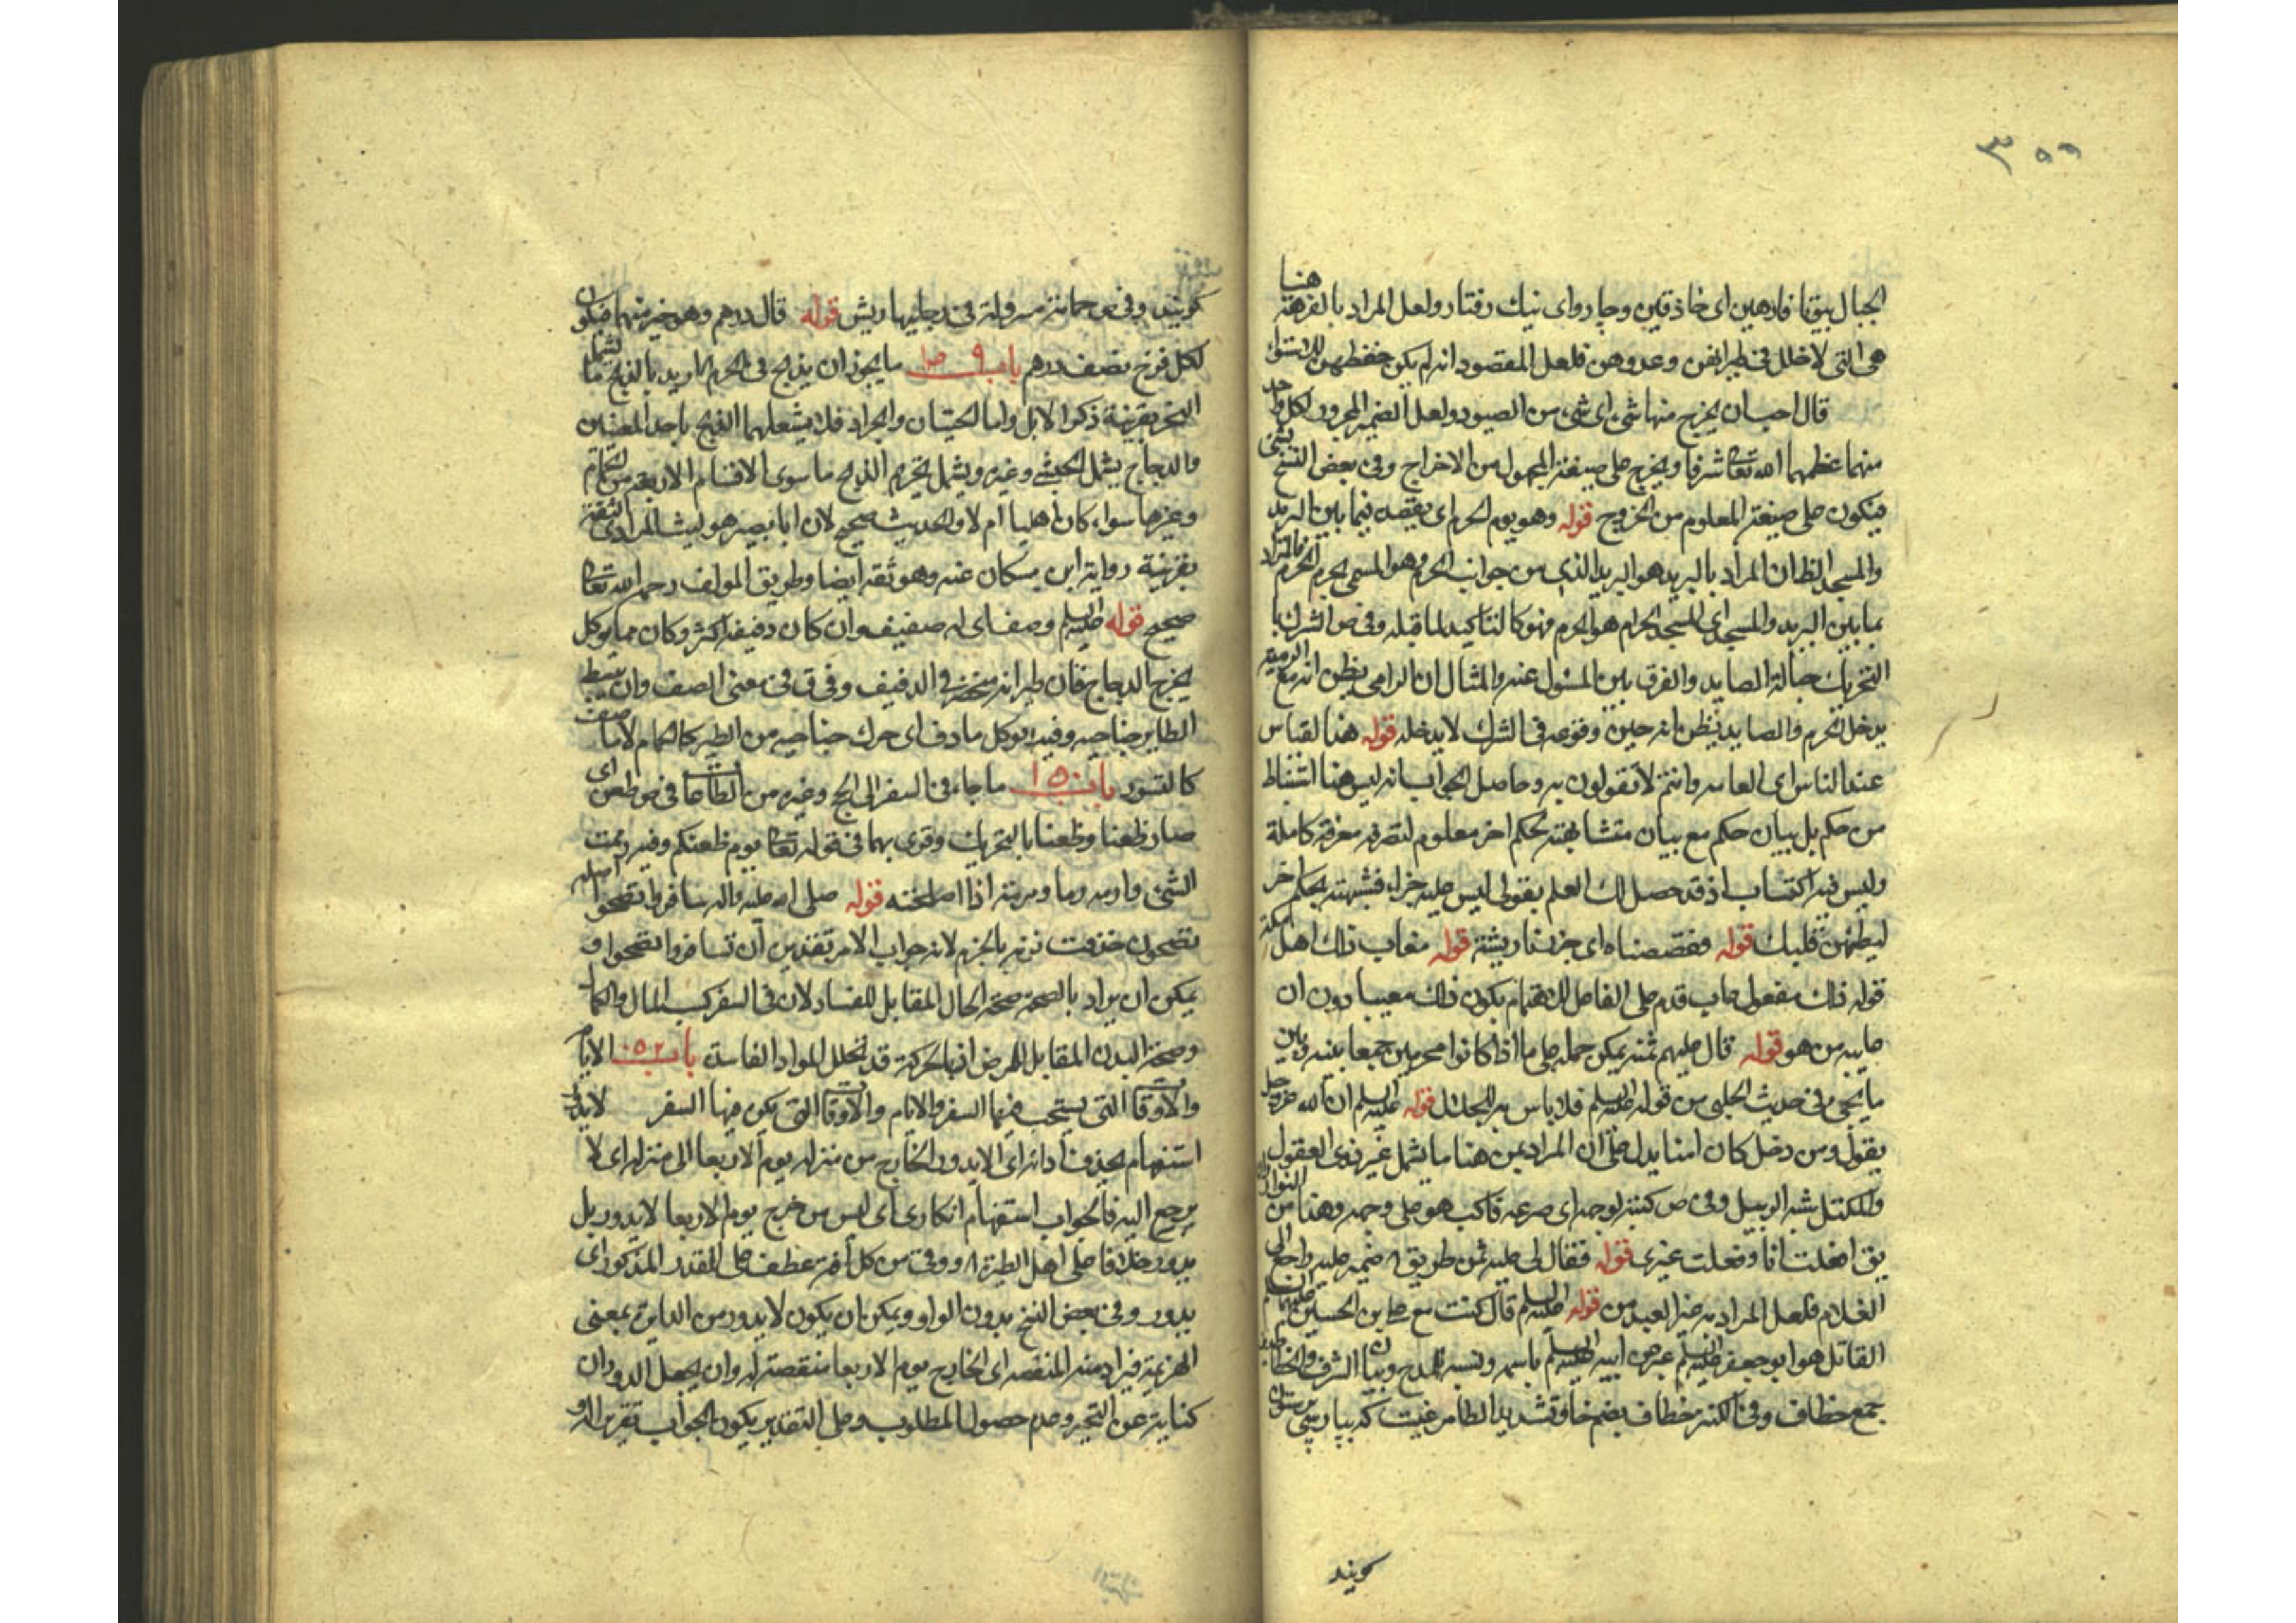 ٣٥٩
الجبال بيوتا فارهين اى حاذقين وجاروا اى نيك رفتار ولعل المراد بالفرهة هنا
هى التى لا خلل فى طيرانهن وعدوهن فلعل المقصود انه لم يكن حفظهن للاستواء
قال احب ان يخرج منها شىء اى شىء من الصيود ولعل الضمير المجرور لكل واحد
منهما عظمهما الله تعالى شرفا ويخرج على صيغة المجهول من الاخراج وفى بعض النسخ
فيكون على صيغة المعلوم من الخروج قوله وهو يوم الحرم اى يقصد فيما بين البريد
والمسجد الظ ان المراد بالبريد هو البريد الذى من جوانب الحرم وهو المسمى بحرم الحرم
بما بين البريد والمسجد اى المسجد الحرام هو الحرم فهو كالتاكيد لما قبله وفى ص الشرك با
التحريك حبالة الصايد والفرق بين المسئول عنه والمثال ان الرامى يظن انه مع الرمية
يدخل الحرم والصايد يظن انه حين وقوعه فى الشرك لا يدخله قوله هذا القياس
عند الناس اى العامه وانتم لا تقولون به وحاصل الجواب انه ليس هنا استنباط
من حكم بل بيان حكم مع بيان مشابهته لحكم اخر معلوم لتعرفه معرفة كاملة
وليس فيه اكتساب اذ قد حصل لك العلم بقولى ليس عليه جزاء فشبهته بحكم اخر
ليطمئن قلبك قوله فقصصناه اى جززنا ريشته قوله فعاب ذلك اهل مكة
قوله ذلك مفعول عاب قدم على الفاعل للاهتمام بكون ذلك معيبا دون ان
عايبه من هو قوله قال عليهم ثمنه يمكن حمله على ما اذا كانوا محرمين جمعا بينه وبين
ما يجىء فى حديث الحلبى من قوله عليه السلم فلا باس به للحلال قوله عليه السلم ان الله عز وجل
يقول ومن دخل كان امنا يدل على ان المراد بمن هنا ما يشمل غير ذوى العقول
والمكتل شبه الزبيل وفى ص كبه لوجهه اى صرعه فاكب هو على وجهه وهذا من النوادر
يق افعلت انا وفعلت غيرى قوله فقال لى عليه ثمن طريق ضمير عليه راجع الى
الغلام فلعل المراد به ضد العبد من قوله عليه السلم قال كنت مع على بن الحسين عليهما السلم
القائل هو ابو جعفر عليه السلم عبر عن ابيه عليه السلم باسمه ونسبه للمدح وبيان الشرف والخطا
جمع خطاف وفى الكنز خطاف بضم خا وتشديد الطا مرغيست كه بپارسى پرستوان
كويند
كويند وفى ص حمامة مسرولة فى رجليها ريش قوله قال درهم وهو خير منهما فيكون
لكل فرخ نصف درهم باب ٩ ما يجوز ان يذبح فى الحرم اريد بالذبح ما يشمل
النحر بقرينة ذكر الابل واما الحيتان والجراد فلا يشملهما الذبح باحد المعنيين
والدجاج يشمل الحبشى وغيره ويشمل تحريم الذبح ما سوى الاقسام الاربعة من الحمام
وغيرها سواء كان اهليا ام لا والحديث صحيح لان ابا بصير هو ليث المرادى الثقة
بقرينة رواية ابن مسكان عنه وهو ثقه ايضا وطريق المولف رحمه الله تعالى
صحيح قوله عليه السلم وصف اى له صفيف وان كان دفيفه اكثر وكان مما يوكل
يخرج الدجاج فان طيرانه منحصر فى الدفيف وفى ق فى معنى الصف وان يبسط
الطاير جناحيه وفيه يوكل ما دف اى حرك جناحيه من الطير كالحمام لا ما صف
كالنسور باب ١٥٠ ما جاء فى السفر الى الحج وغيره من الطاعات فى ص ظعن اى
صار ظعنا وظعنا بالتحريك وقرى بهما فى قوله تعالى يوم ظعنكم وفيه رممت
الشىء وارمه رما ومرمة اذا اصلحته قوله صلى الله عليه واله سافروا تصحوا اصله
تصحون حذفت نونه بالجزم لانه جواب الامر بتقدير ان تسافروا تصحوا و
يمكن ان يراد بالصحة صحة الحال المقابل للفساد لان فى السفر كسب المال والكمال
وصحة البدن المقابل للمرض اذ بالحركة قد تحلل المواد الفاسدة باب ٥٢ الايام
والاوقات التى يستحب فيها السفر والايام والاوقات التى يكره فيها السفر لا يدور
استفهام بحذف اداته اى الا يدور الخارج من منزله يوم الاربعا الى منزله اى لا
يرجع اليه فالجواب استفهام انكارى اى ليس من خرج يوم الاربعا لا يدور بل
يدور خلافا على اهل الطيرة ووقى من كل افة عطف على المقدر المذكور اى
يدور وفى بعض النسخ بدون الواو ويمكن ان يكون لا يدور من الدايرة بمعنى
الهزيمة فيراد منه المنقصه اى الخارج يوم الاربعا منقصة له وان يجعل الدوران
كناية عن التحير وعدم حصول المطلوب وعلى التقدير يكون الجواب تقرير الدو